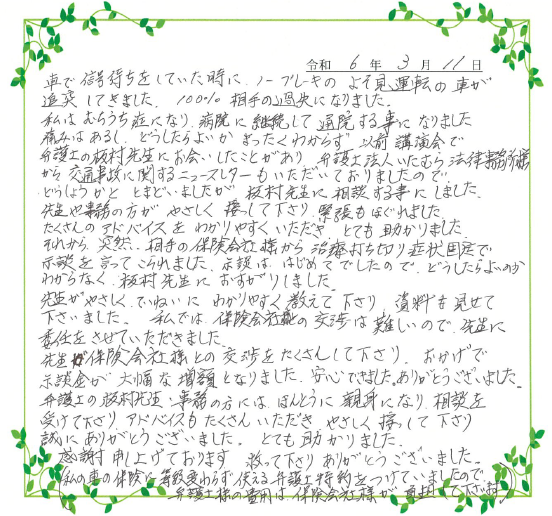 令和 6 年 3 月 11 日
車で信号待ちをしていた時に、ノーブレーキのよそ見運転の車が
追突してきました。100% 相手の過失になりました。
私はむちうち症になり、病院に継続して通院する事になりました
痛みはあるし、どうしたらよいかまったくわからず、以前講演会で
弁護士の板村先生にお会いしたことがあり、弁護士法人いたむら法律事務所様
から交通事故に関するニュースレターもいただいておりましたので
どうしようかととまどいましたが、板村先生に相談する事にしました。
先生や事務の方がやさしく接して下さり、緊張もほぐれました。
たくさんのアドバイスをわかりやすくいただき、とても助かりました。
それから、突然、相手の保険会社様から治療打ち切り症状固定で
示談を言ってこられました。示談は、はじめてでしたので、どうしたらよいのか
わからなく、板村先生におすがりしました。
先生がやさしく、ていねいにわかりやすく教えて下さり、資料を見せて
下さいました。私では、保険会社様の交渉は難しいので、先生に
委任をさせていただきました。
先生が保険会社様との交渉をたくさんして下さり、おかげで
示談金が大幅な増額となりました。安心できました。ありがとうございました。
弁護士の板村先生・事務の方には、ほんとうに親身になり、相談を
受けて下さり、アドバイスもたくさんいただき、やさしく接して下さり
誠にありがとうございました。とても助かりました。
感謝申し上げております。救って下さりありがとうございました。
(私の車の保険に等級変わらず使える弁護士特約をつけていましたので
弁護士様の費用は、保険会社様が